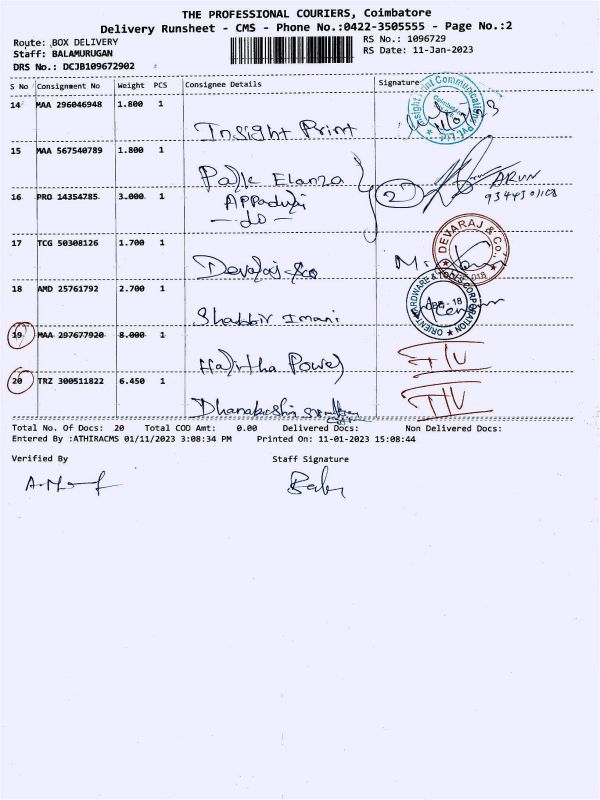 THE PROFESSIONAL COURIERS, Coimbatore
Delivery Runsheet - CMS - Phone No.:0422-3505555 - Page No.:2
Route: BOX DELIVERY
RS No.: 1096729
Staff: BALAMURUGAN
RS Date: 11-Jan-2023
DRS No.: DCJB109672902
S No Consignment No Weight PCS Consignee Details Signature
14 MAA 296046948 1.800 1
Insight Print
15 MAA 567540789 1.800 1
Elanza
ARUN
16 PRO 14354785 3.000 1
2
- do -
17 TCG 50308126 1.700 1
Devaraj & co
DEVARAJ & Co.,
18 AMD 25761792 2.700 1
Shabbir Imani
ORIENT HARDWARE & TOOLS CORPORATION
19 MAA 297677920 8.000 1
Haritha Power
20 TRZ 300511822 6.450 1
Total No. Of Docs: 20 Total COD Amt: 0.00 Delivered Docs: Non Delivered Docs:
Entered By :ATHIRACMS 01/11/2023 3:08:34 PM Printed On: 11-01-2023 15:08:44
Verified By Staff Signature